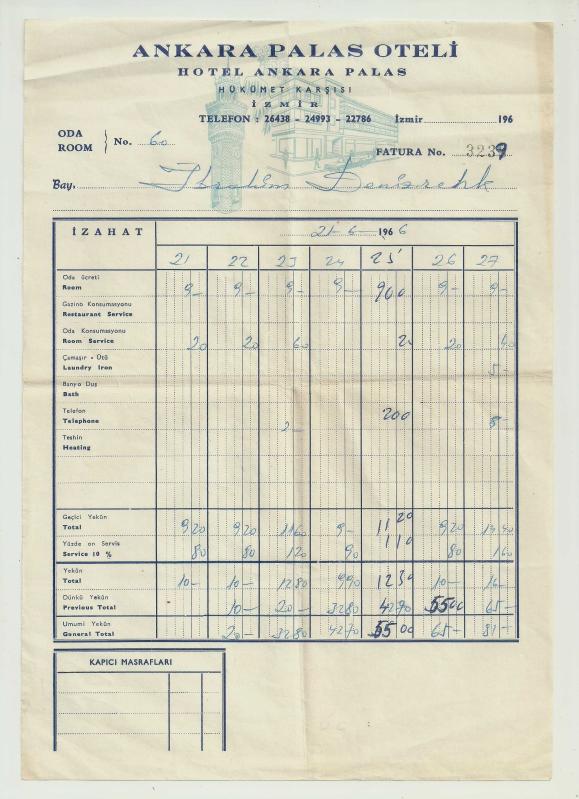 ANKARA PALAS OTELİ
HOTEL ANKARA PALAS
HÜKÜMET KARŞISI
İZMİR
TELEFON : 26438 - 24993 - 22786 İzmir 196
ODA
ROOM No. 60
FATURA No. 3239
Bay. İbrahim
İZAHAT 21-6-1966
21 22 23 24 25 26 27
Oda ücreti
Room 9- 9- 9- 9- 900 9- 9-
Gazino Konsumasyonu
Restaurant Service
Oda Konsumasyonu
Room Service 20 20 60 20 20 40
Çamaşır - Ütü
Laundry Iron 5-
Banyo Duş
Bath
Telefon
Telephone 2- 200
Teshin
Heating
Geçici Yekûn
Total 920 920 1160 9- 1120 920
Yüzde on Servis
Service 10 % 80 80 120 90 110 80 160
Yekûn
Total 10- 10- 1280 990 1230 10- 16-
Dünkü Yekûn
Previous Total 10- 20- 3280 4270 5500 65-
Umumi Yekûn
General Total 20- 3280 4270 5500 65- 81-
KAPICI MASRAFLARI